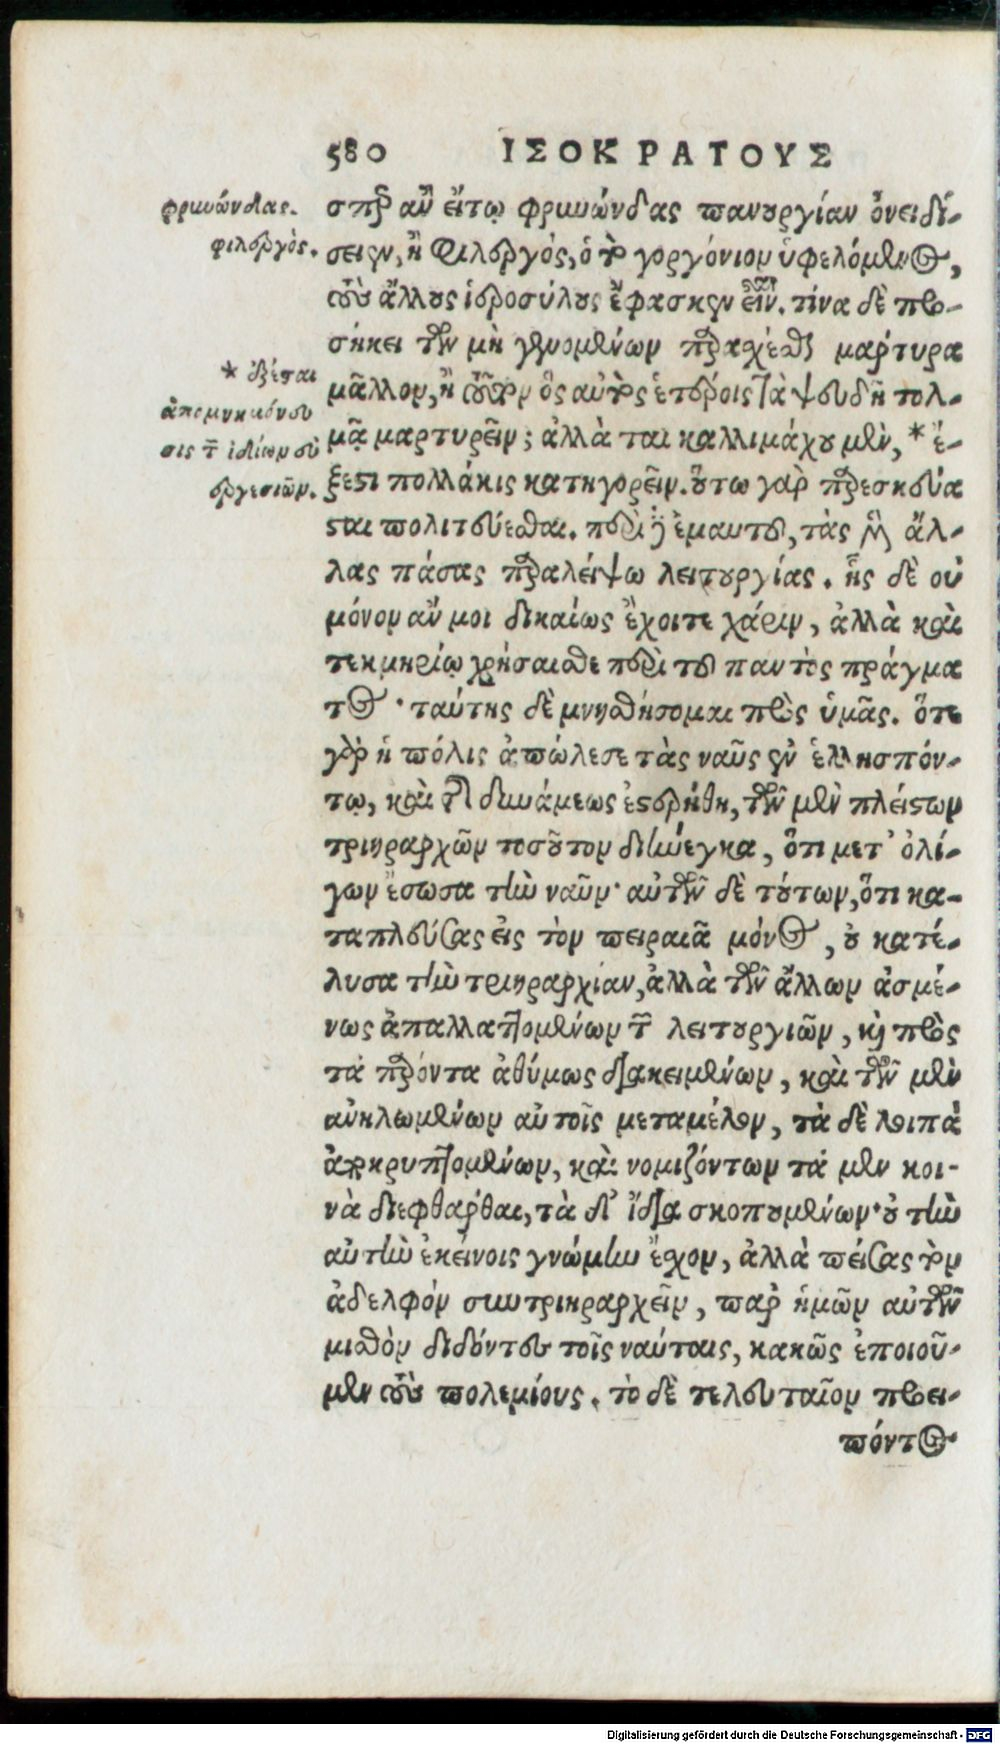 580 ΙΣΟΚΡΑΤΟΥΣ
φρυνώνδας.
φιλεργὸς.
σπερ ἂν εἴ τῳ φρυνώνδας πανουργίαν ὀνειδί-
σειεν, ἢ Φιλεργὸς, ὁ τὸ γοργόνιον ὑφελόμενος,
τοὺς ἄλλους ἱεροσύλους ἔφασκεν εἶναι. τίνα δὲ προ-
σήκει τῶν μὴ γενομένων παρασχέσθαι μάρτυρα
μᾶλλον, ἢ τοῦτον ὃς αὐτὸς ἑτέροις τὰ ψευδῆ τολ-
μᾷ μαρτυρεῖν; ἀλλὰ γὰρ καλλιμάχου μὲν, * ἐ-
ξέσται πολλάκις κατηγορεῖν. οὕτω γὰρ παρεσκεύα
σται πολιτεύεσθαι. περὶ δ' ἐμαυτοῦ, τὰς μὲν ἄλ-
λας πάσας παραλείψω λειτουργίας. ἧς δὲ οὐ
μόνον ἄν μοι δικαίως ἔχοιτε χάριν, ἀλλὰ καὶ
τεκμηρίῳ χρήσαισθε περὶ τοῦ παντὸς πράγμα
τος· ταύτης δὲ μνησθήσομαι πρὸς ὑμᾶς. ὅτε
γὰρ ἡ πόλις ἀπώλεσε τὰς ναῦς ἐν ἑλλησπόν-
τῳ, καὶ τῆς δυνάμεως ἐστερήθη, τῶν μὲν πλείστων
τριηραρχῶν τοσοῦτον διήνεγκα, ὅτι μετ' ὀλί-
γων ἔσωσα τὴν ναῦν· αὐτῶν δὲ τούτων, ὅτι κα-
ταπλεύσας εἰς τὸν πειραιᾶ μόνος, οὐ κατέ-
λυσα τὴν τριηραρχίαν, ἀλλὰ τῶν ἄλλων ἀσμέ-
νως ἀπαλλαττομένων τῶν λειτουργιῶν, καὶ πρὸς
τὰ παρόντα ἀθύμως διακειμένων, καὶ τῶν μὲν
ἀνηλωμένων αὐτοῖς μεταμέλον, τὰ δὲ λοιπὰ
ἀποκρυπτομένων, καὶ νομιζόντων τὰ μὲν κοι-
νὰ διεφθάρθαι, τὰ δ' ἴδια σκοπουμένων· οὐ τὴν
αὐτὴν ἐκείνοις γνώμην ἔχον, ἀλλὰ πείσας τὸν
ἀδελφόν συντριηραρχεῖν, παρ' ἡμῶν αὐτῶν
μισθὸν διδόντες τοῖς ναύταις, κακῶς ἐποιοῦ-
μεν τοὺς πολεμίους. τὸ δὲ τελευταῖον προει-
πόντος
ἀπομνημόνευ
σις τῶν ἰδίων εὐ
εργεσιῶν.
Digitalisierung gefördert durch die Deutsche Forschungsgemeinschaft - DFG